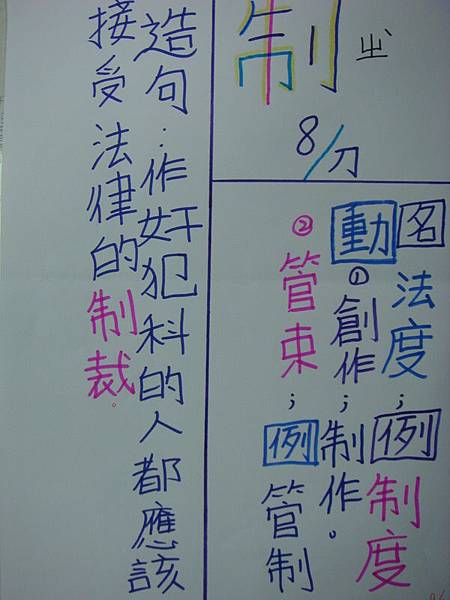 制 ㄓˋ
8/刀
名法度；例制度
動①創作；制作。
②管束；例管制
造句：作奸犯科的人都應該
接受法律的制裁。